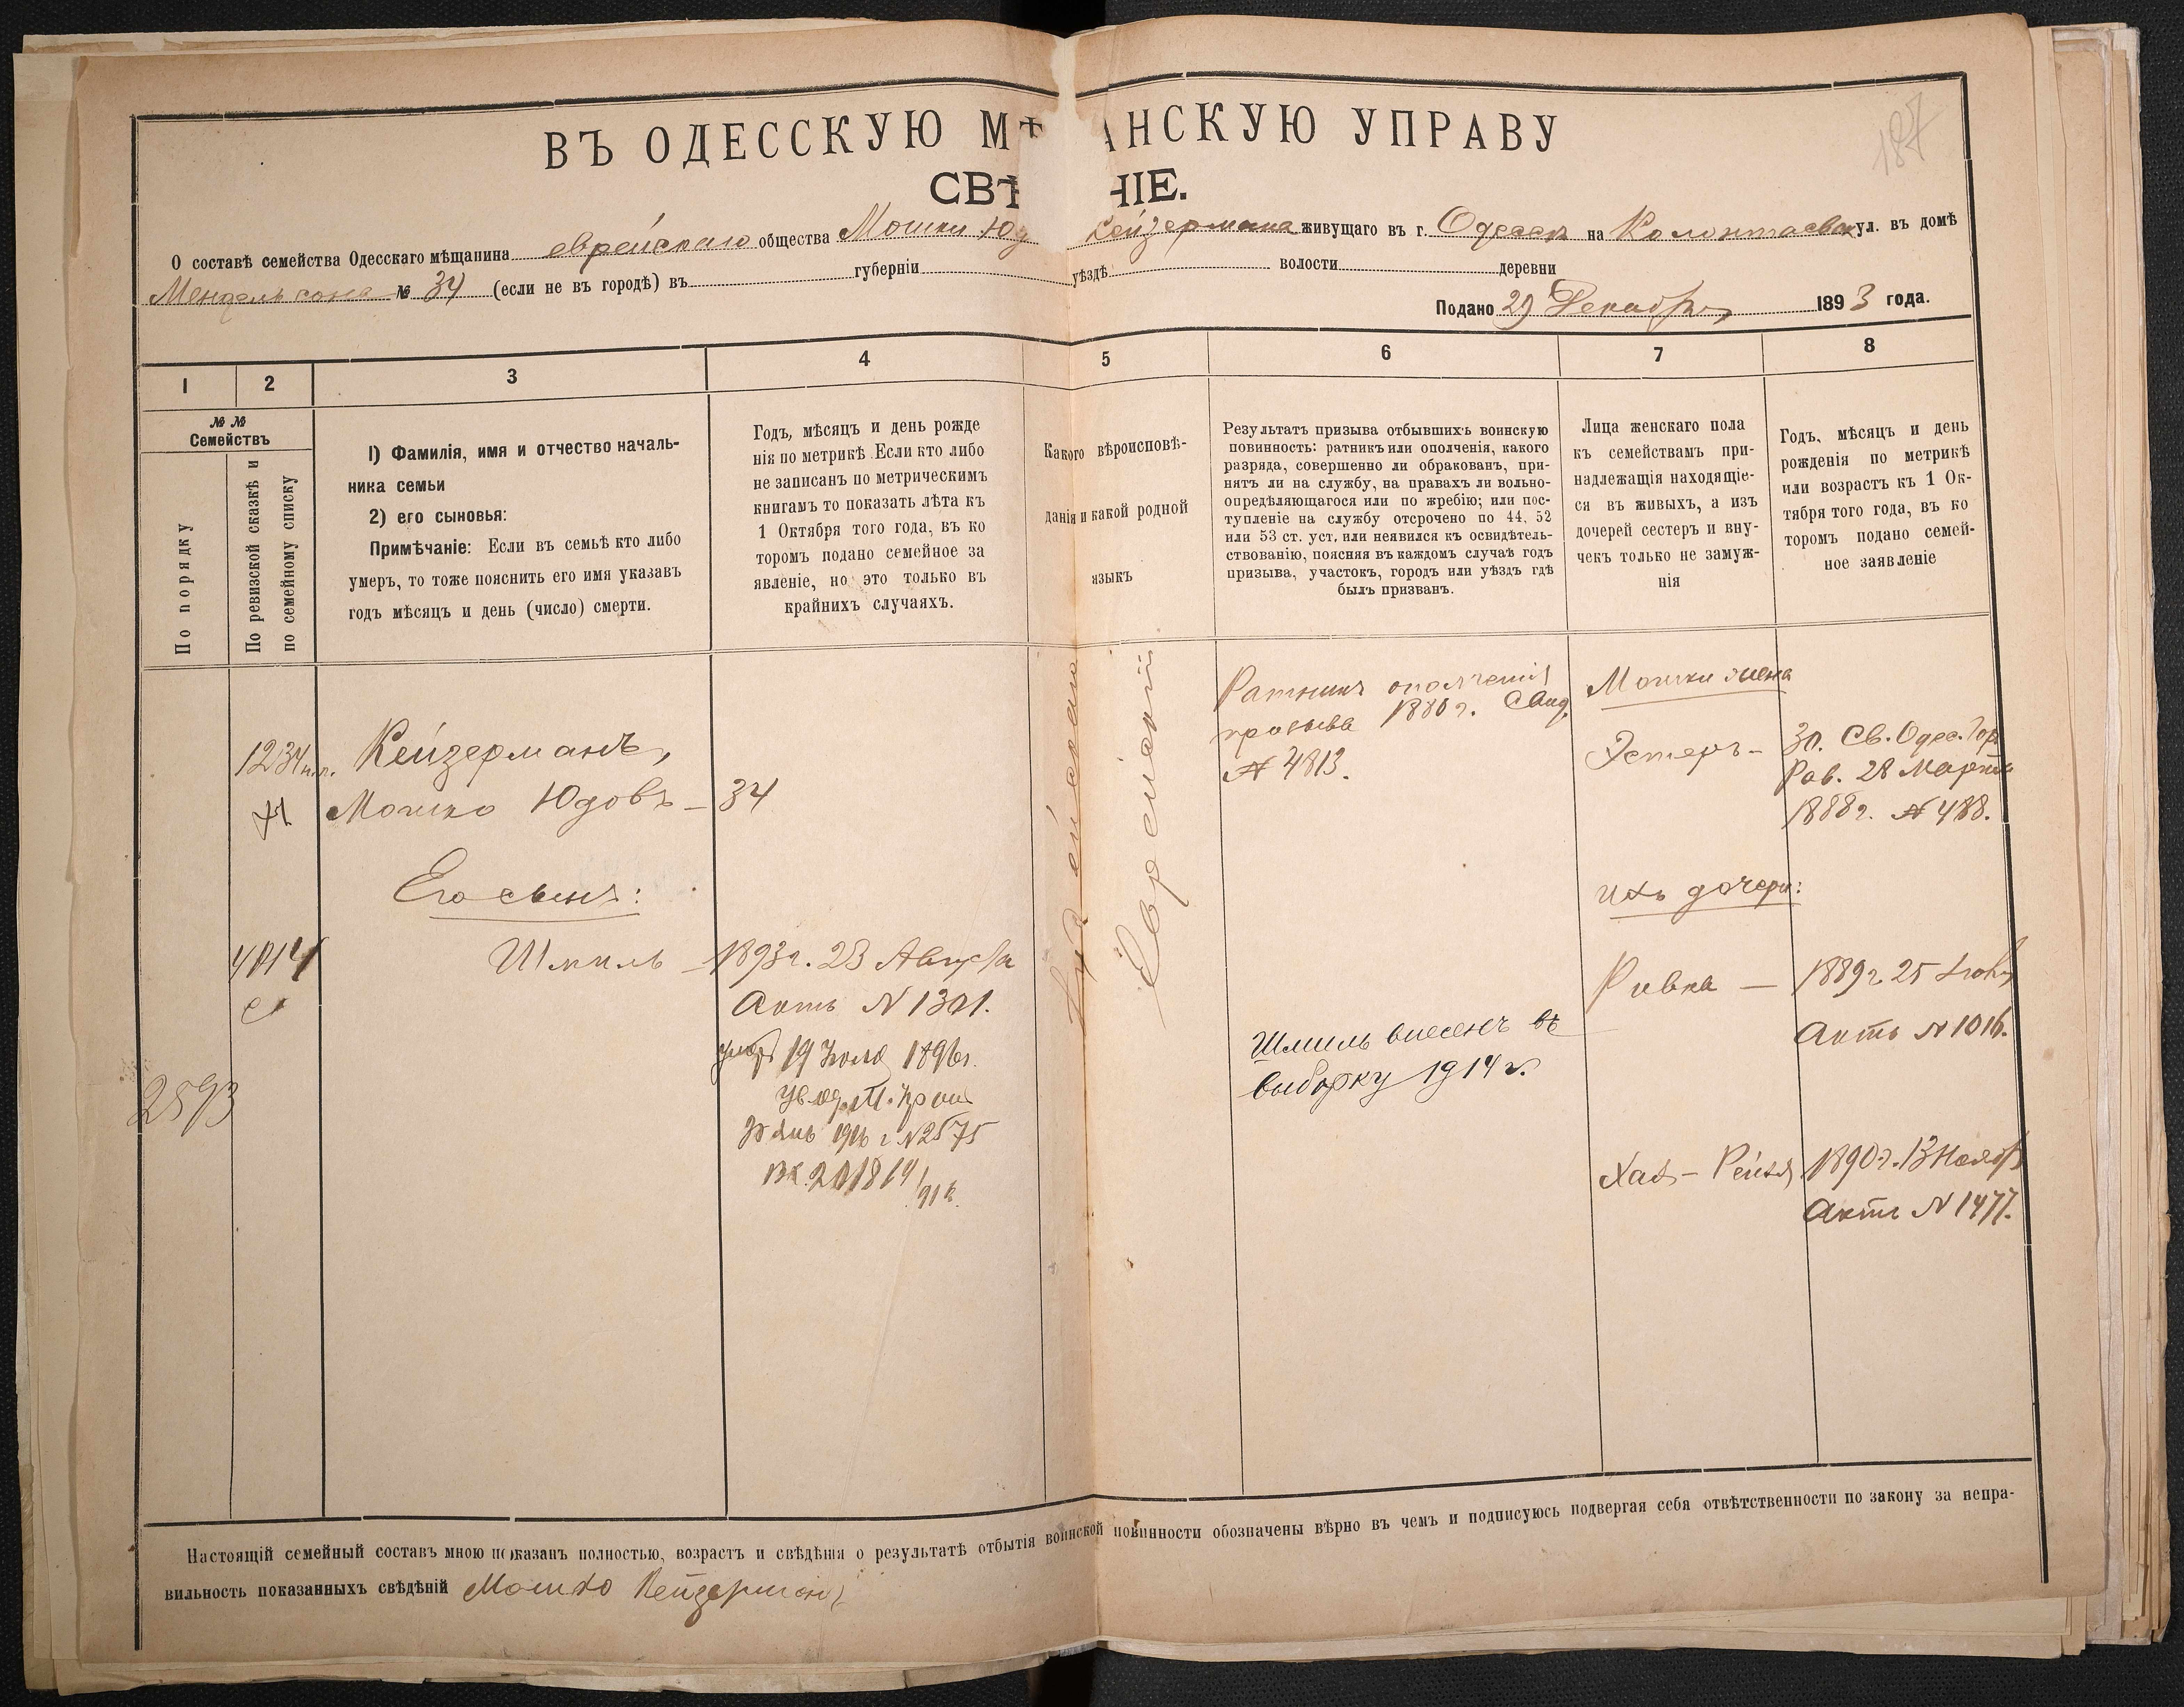 187
ВЪ ОДЕССКУЮ МѢ АНСКУЮ УПРАВУ
СВѢ НІЕ.
О составѣ семейства Одесскаго мѣщанина еврейскаго общества Мошки Юд Кейзермана живущаго въ г. Одессѣ на Колонтаевск ул. въ домѣ
Мендельсона № 34 (если не въ городѣ) въ губерніи уѣздѣ волости деревни
Подано 29 Декабря 1893 года.
1 2 3 4 5 6 7 8
№ №
Семействъ
По порядку
По ревизской сказкѣ и
по семейному списку
1) Фамилія, имя и отчество началь-
ника семьи
2) его сыновья:
Примѣчаніе: Если въ семьѣ кто либо
умеръ, то тоже пояснить его имя указавъ
годъ мѣсяцъ и день (число) смерти.
Годъ, мѣсяцъ и день рожде
нія по метрикѣ. Если кто либо
не записанъ по метрическимъ
книгамъ то показать лѣта къ
1 Октября того года, въ ко
торомъ подано семейное за
явленіе, но это только въ
крайнихъ случаяхъ.
Какого вѣроисповѣ-
данія и какой родной
языкъ
Результатъ призыва отбывшихъ воинскую
повинность: ратникъ или ополченія, какого
разряда, совершенно ли обракованъ, при-
нятъ ли на службу, на правахъ ли вольно-
опредѣляющагося или по жребію; или пос-
тупленіе на службу отсрочено по 44, 52
или 53 ст. уст. или неявился къ освидѣтель-
ствованію, поясняя въ каждомъ случаѣ годъ
призыва, участокъ, городъ или уѣздъ гдѣ
былъ призванъ.
Лица женскаго пола
къ семействамъ при-
надлежащія находящіе-
ся въ живыхъ, а изъ
дочерей сестеръ и вну-
чекъ только не замуж-
нія
Годъ, мѣсяцъ и день
рожденія по метрикѣ
или возрастъ къ 1 Ок-
тября того года, въ ко
торомъ подано семей-
ное заявленіе
1234
Кейзерманъ,
Мошко Юдовъ — 34
Его сынъ:
Шмиль — 1893 г. 23 Августа
Актъ N 1301.
умеръ 19 1896 г.
N 2575
2593
Еврейскій
Ратникъ ополченія
призыва 1880 г. Свид.
№ 4813.
Шмиль внесенъ въ
выборку 1914 г.
Мошки жена
Эстеръ — 30. Св. Одес. Гор
Рав. 28 Марта
1888 г. № 488.
ихъ дочери:
Ривка — 1889 г. 25
Актъ N 1016.
Хая - Рейзя 1890 г. 13 Ноября
Актъ N 1477.
Настоящій семейный составъ мною показанъ полностью, возрастъ и свѣдѣнія о результатѣ отбытія воинской повинности обозначены вѣрно въ чемъ и подписуюсь подвергая себя отвѣтственности по закону за непра-
вильность показанныхъ свѣдѣній Мошко Кейзерманъ